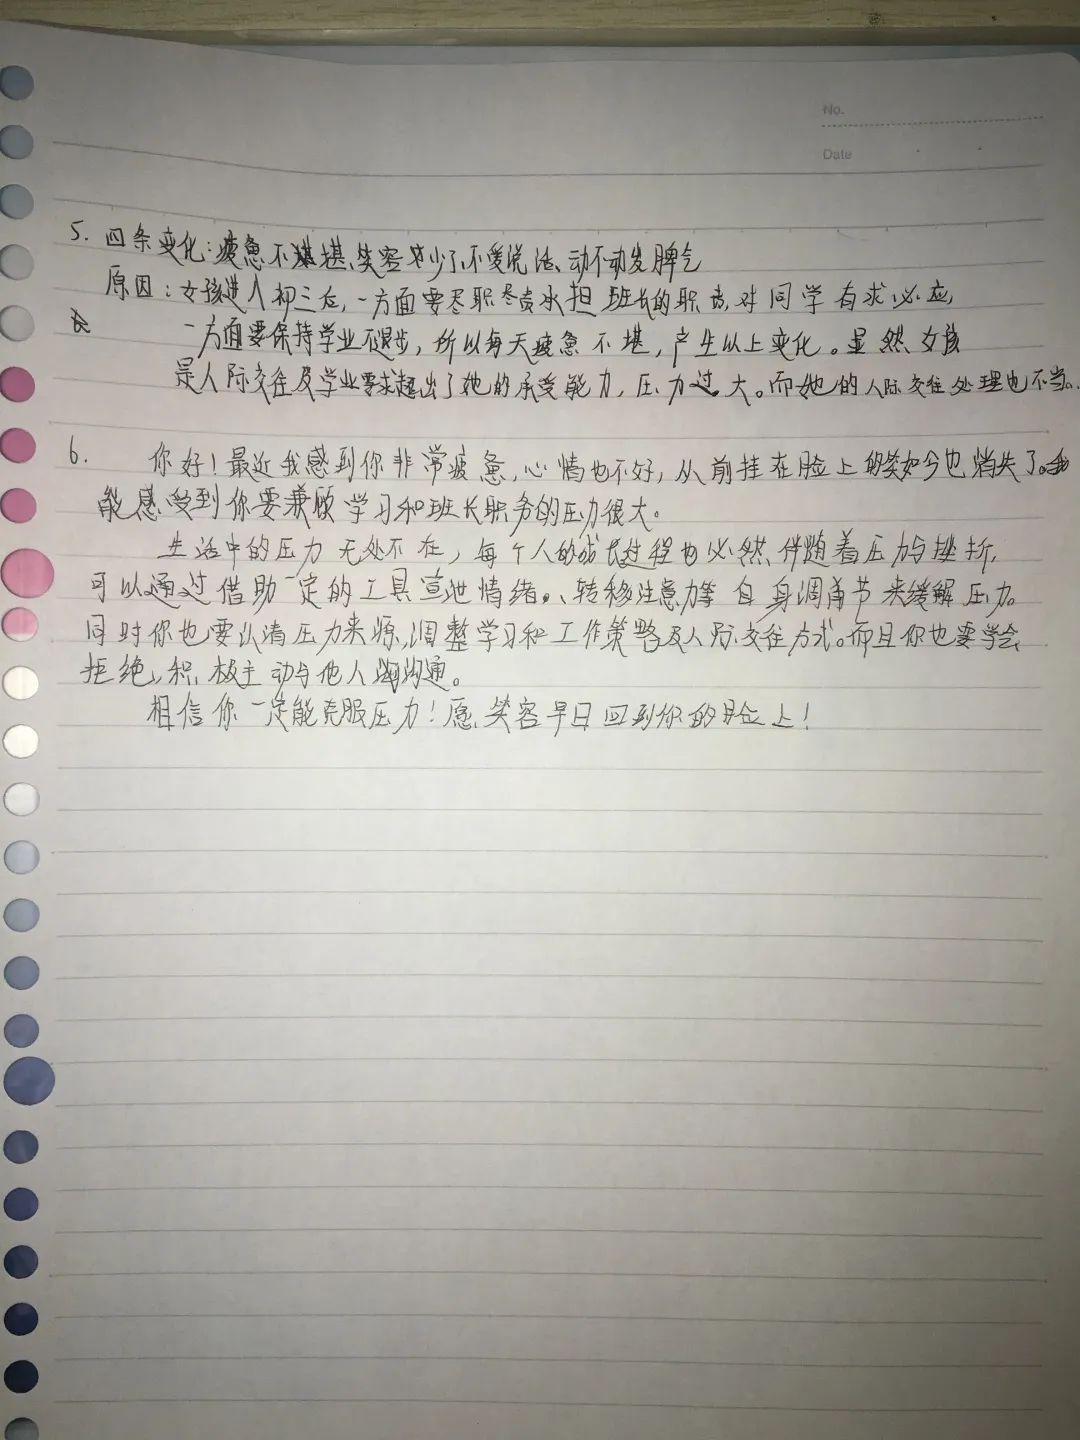 No.
Date
5. 四条变化：疲惫不堪、笑容减少了、不爱说话、动不动发脾气
原因：女孩进入初三后，一方面要尽职尽责承担班长的职责，对同学有求必应，
一方面要保持学业不退步，所以每天疲惫不堪，产生以上变化。显然女孩
是人际交往及学业要求超出了她的承受能力，压力过大。而她的人际交往处理也不当。
6. 你好！最近我感到你非常疲惫，心情也不好，从前挂在脸上的笑如今也消失了。我
能感受到你要兼顾学习和班长职务的压力很大。
生活中的压力无处不在，每个人的成长过程也必然伴随着压力与挫折，
可以通过借助一定的工具宣泄情绪、转移注意力等自身调节来缓解压力。
同时你也要认清压力来源，调整学习和工作策略及人际交往方式。而且你也要学会
拒绝，积极主动与他人沟通。
相信你一定能克服压力！愿笑容早日回到你的脸上！